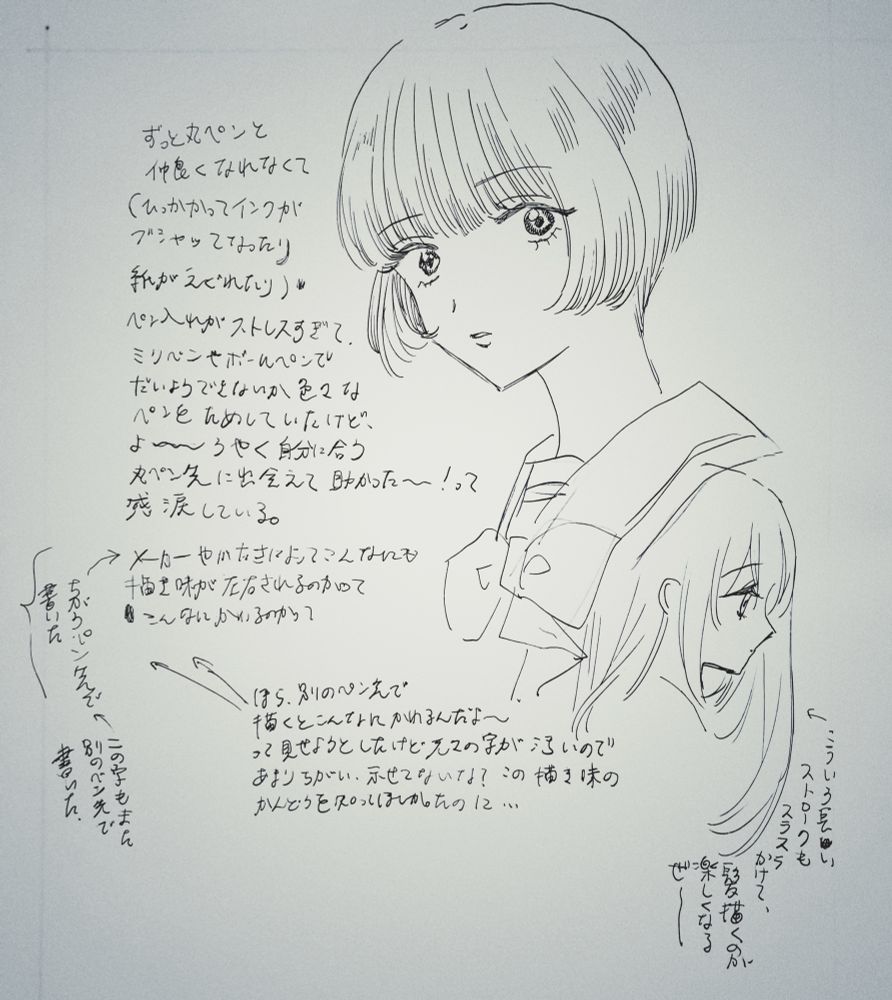 ずっと丸ペンと
仲良くなれなくて
(ひっかかってインクが
ブシャッてなったり
紙がえぐれたり)
ペン入れがストレスすぎて、
ミリペンやボールペンで
だいようできないか色々な
ペンをためしていたけど、
よ〜〜うやく自分に合う
丸ペン先に出会えて助かった〜!って
感涙している。
メーカーやかたさによってこんなにも
描き味が左右されるのかって
こんなにかわるのかって
ちがうペン先で
書いた
この字もまた
別のペン先で
書いた.
ほら、別のペン先で
描くとこんなにかわるんだよ〜
って見せようとしたけど元々の字が汚いので
あまりちがい、示せてないな?この描き味の
かんどうを知ってほしかったのに…
こういう長い
ストロークも
スラスラ
かけて、
髪描くのが
楽しくなる
ぜ〜